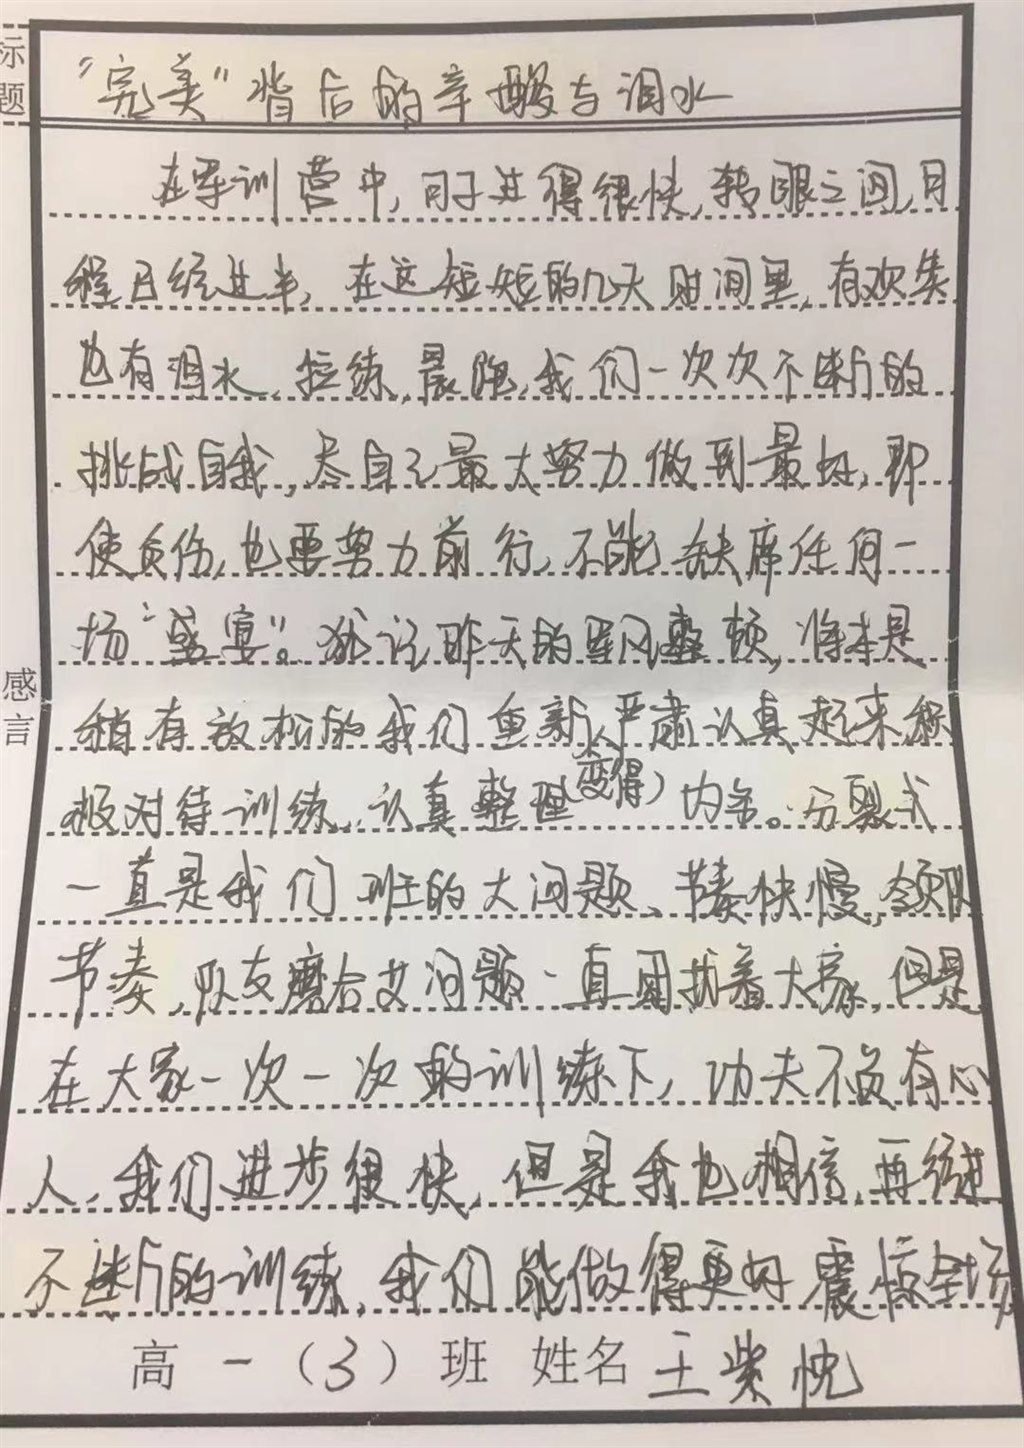 标题
"完美"背后的辛酸与泪水
在军训营中,日子过得很快,转眼之间,日
程已经过半,在这短短的几天时间里,有欢笑
也有泪水,拉练,晨跑,我们一次次不断的
挑战自我,尽自己最大努力做到最好,即
使负伤,也要努力前行,不能缺席任何一
场"盛宴"。犹记昨天的军风整顿,将本是
稍有放松的我们重新严肃认真起来积
(变得)
极对待训练,认真整理内务。分裂式
一直是我们班的大问题、节奏快慢,领队
节奏,队友磨合 问题一直困扰着大家,但是
在大家一次一次的训练下,功夫不负有心
人,我们进步很快,但是我也相信,再经过
不断的训练,我们能做得更好 震惊全场
感言
高一(3)班 姓名 王紫忱